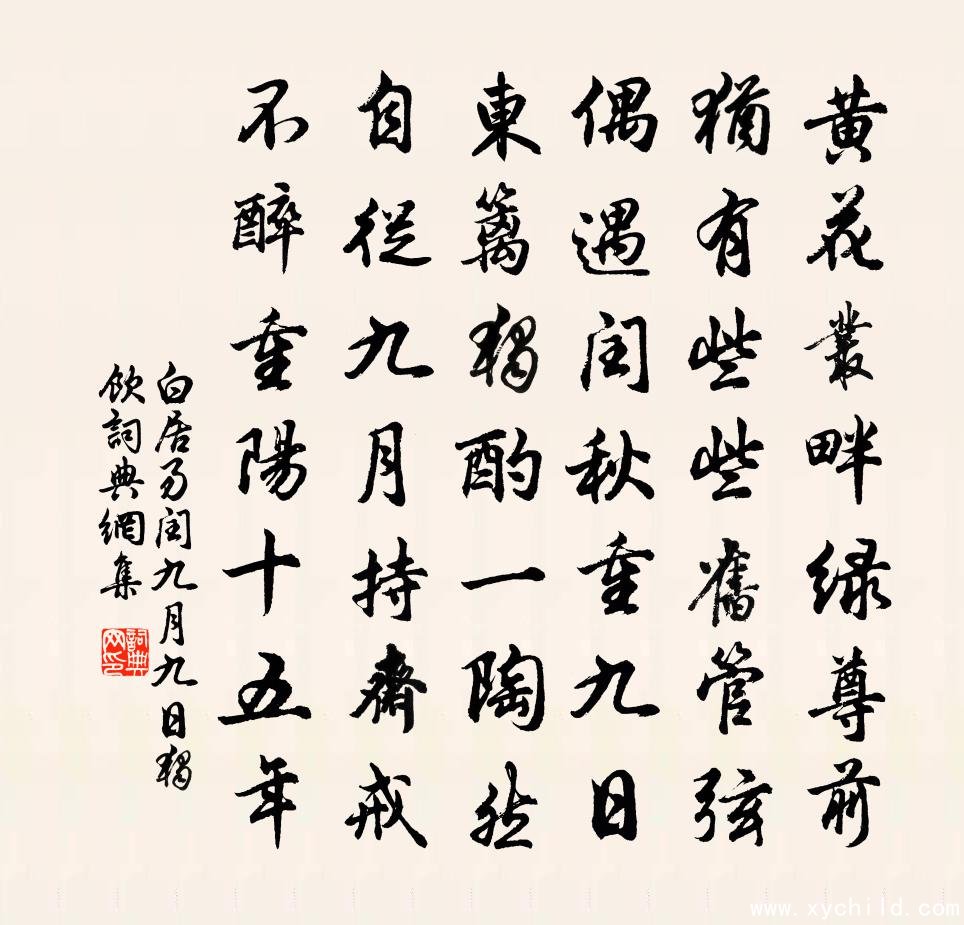 黄花叢畔緑尊前
猶有些些舊管弦
偶遇閏秋重九日
東籬獨酌一陶然
自從九月持齋戒
不醉重陽十五年
白居易閏九月九日獨
飲詞典網集
詞典網印
www.xychild.com